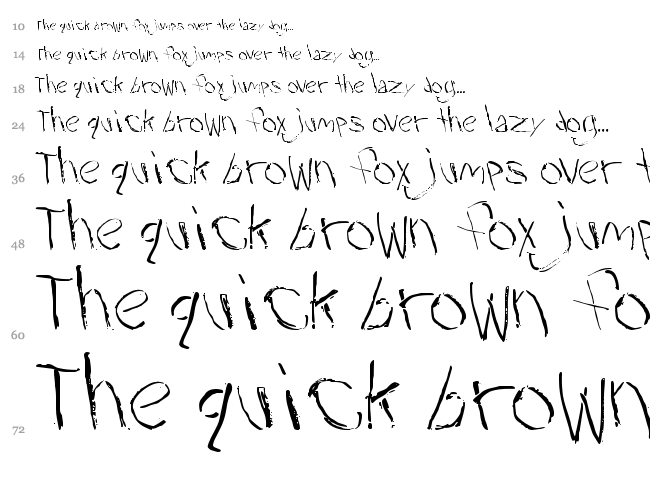 10 The quick brown fox jumps over the lazy dog...
14 The quick brown fox jumps over the lazy dog...
18 The quick brown fox jumps over the lazy dog...
24 The quick brown fox jumps over the lazy dog...
36 The quick brown fox jumps over t
48 The quick brown fox jump
60 The quick brown fo
72 The quick brown